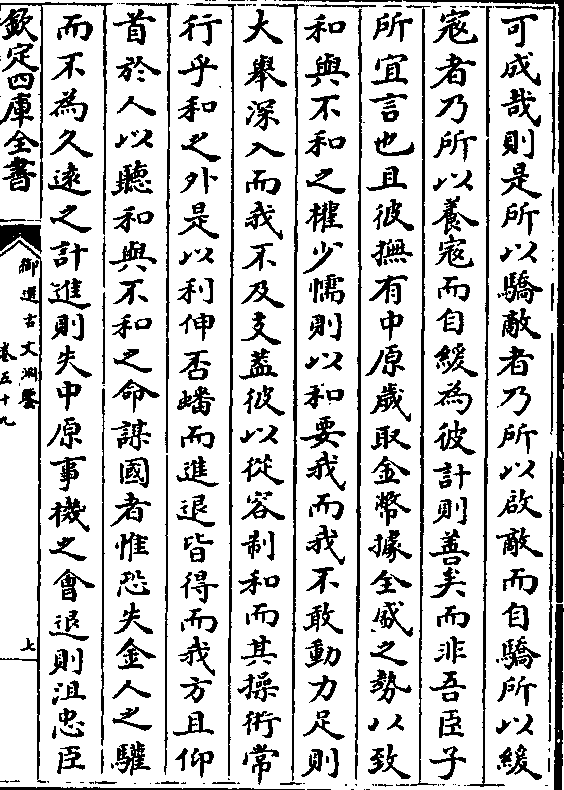 可成哉則是所以驕敵者乃所以啟敵而自驕所以緩
宼者乃所以養宼而自緩為彼計則善矣而非吾臣子
所宜言也且彼撫有中原歲取金幣據全盛之勢以致
和與不和之權少懦則以和要我而我不敢動力足則
大舉深入而我不及支葢彼以從容制和而其操術常
行乎和之外是以利伸否蟠而進退皆得而我方且仰
首於人以聽和與不和之命謀國者惟恐失金人之驩
而不為久逺之計進則失中原事機之會退則沮忠臣
欽定四庫全書
御選古文淵鑒
卷五十九
七